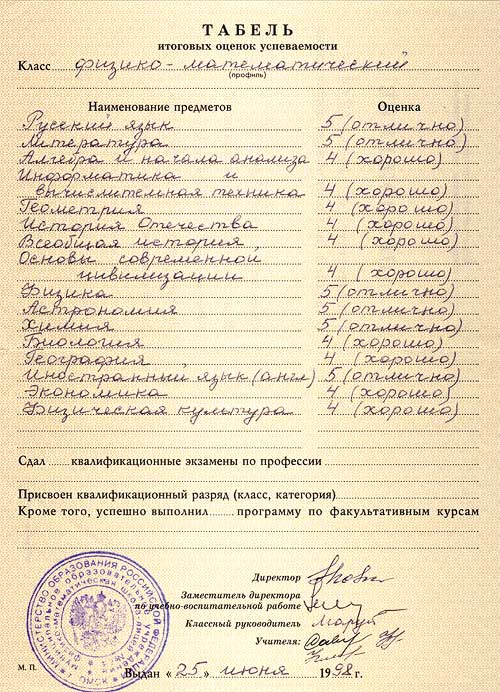 ТАБЕЛЬ
итоговых оценок успеваемости
Класс физико-математический
(профиль)
Наименование предметов Оценка
Русский язык 5 (отлично)
Литература 5 (отлично)
Алгебра и начала анализа 4 (хорошо)
Информатика и
вычислительная техника 4 (хорошо)
Геометрия 4 (хорошо)
История Отечества 4 (хорошо)
Всеобщая история 4 (хорошо)
Основы современной
цивилизации 4 (хорошо)
Физика 5 (отлично)
Астрономия 5 (отлично)
Химия 5 (отлично)
Биология 4 (хорошо)
География 4 (хорошо)
Иностранный язык (англ) 5 (отлично)
Экономика 4 (хорошо)
Физическая культура 4 (хорошо)
Сдал квалификационные экзамены по профессии
Присвоен квалификационный разряд (класс, категория)
Кроме того, успешно выполнил программу по факультативным курсам
МИНИСТЕРСТВО ОБРАЗОВАНИЯ РОССИЙСКОЙ ФЕДЕРАЦИИ
ОМСК
Директор
Заместитель директора
по учебно-воспитательной работе
Классный руководитель
Учителя:
М. П.
Выдан «25» июня 1998 г.